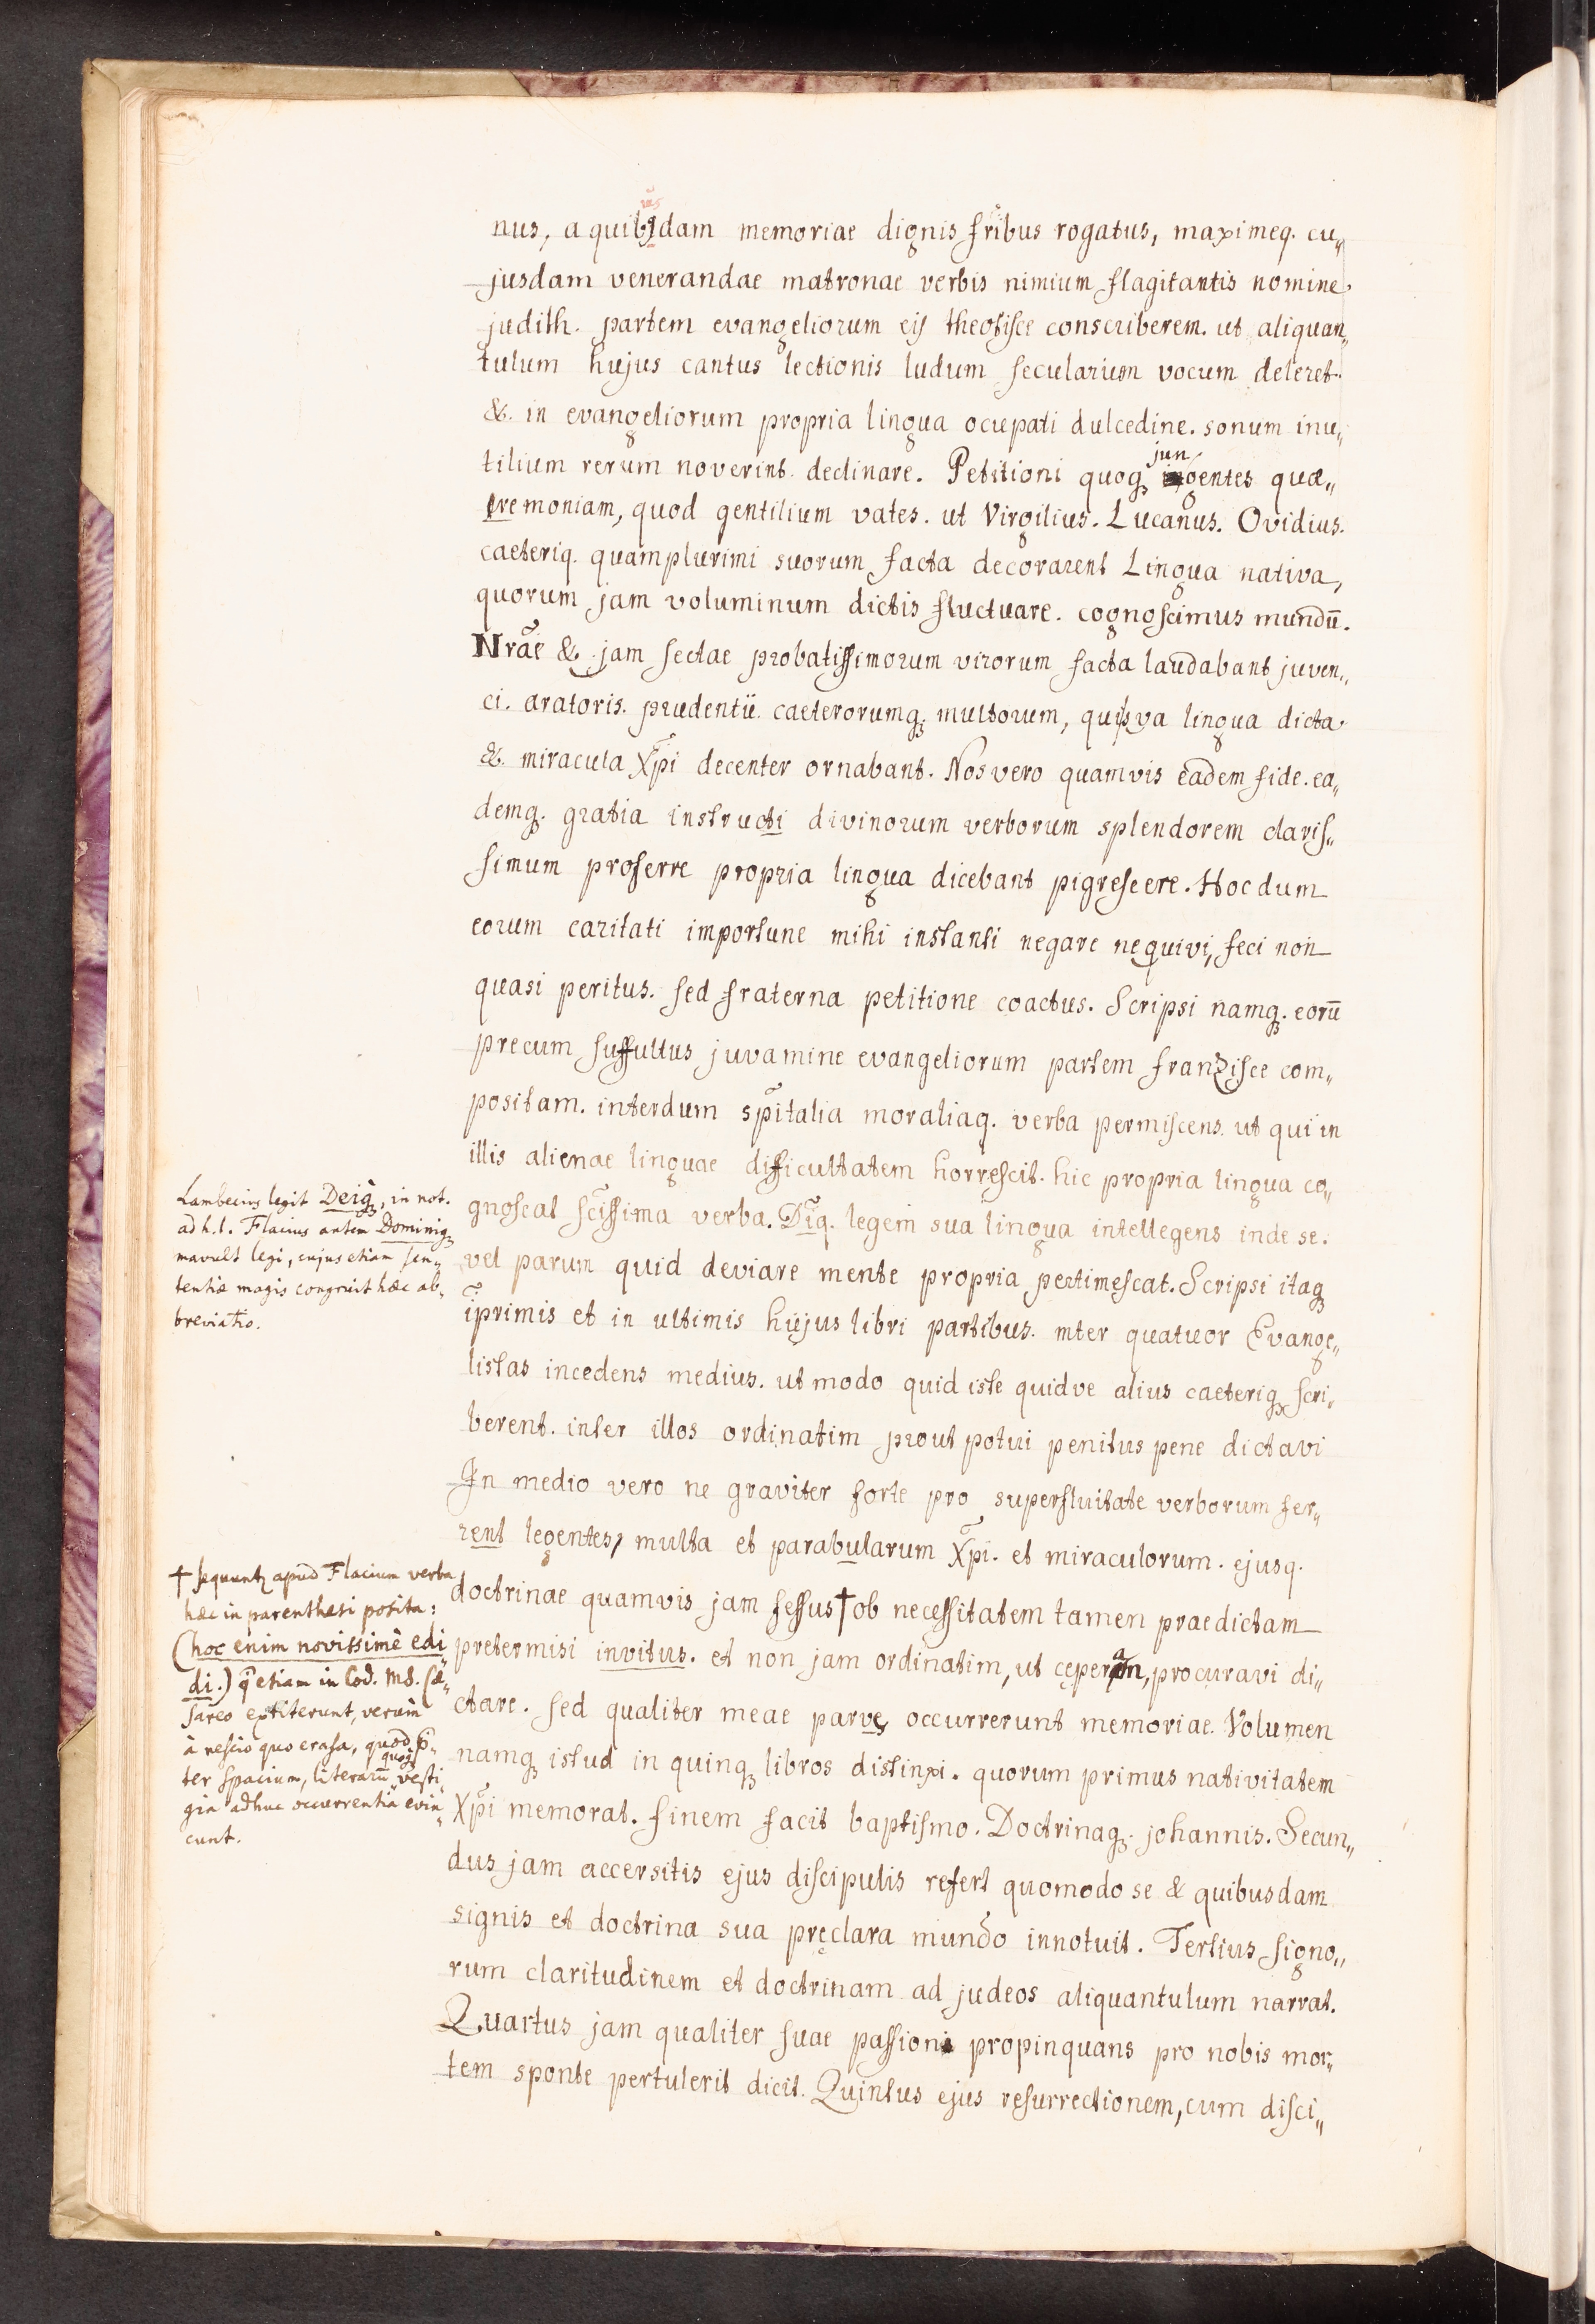 nus, a quibusdam memoriae dignis fribus rogatus, maximeq. cu„
jusdam venerandae matronae verbis nimium flagitantis nomine.
judith. partem evangeliorum eis theotisce conscriberem. ut aliquan„
tulum hujus cantus lectionis ludum secularium vocum deleret.
&. in evangeliorum propria lingua ocupati dulcedine. sonum inu„
tilium rerum noverint. declinare. Petitioni quoqȝ jungentes quæ„
remoniam, quod gentilium vates. ut Virgilius. Lucanus. Ovidius.
caeteriq. quamplurimi suorum facta decorarent Lingua nativa,
quorum jam voluminum dictis fluctuare. cognoscimus mundū.
Nrāe & jam sectae probatissimorum virorum facta laudabant juven„
ci. aratoris. prudentii. caeterorumqȝ multorum, qui sua lingua dicta.
&. miracula Xp̄i decenter ornabant. Nos vero quamvis eadem fide. ea„
demqȝ. gratia instructi divinorum verborum splendorem claris„
simum proferre propria lingua dicebant pigrescere. Hoc dum
eorum caritati importune mihi instanti negare nequivi, feci non
quasi peritus. sed fraterna petitione coactus. Scripsi namqȝ. eorū
precum suffultus juvamine evangeliorum partem franzisce com„
positam. interdum sp̄italia moraliaq. verba permiscens. ut qui in
illis alienae linguae difficultatem horrescit. hic propria lingua co„
gnoscat sc̄issima verba. D̄iq. legem sua lingua intellegens inde se.
vel parum quid deviare mente propria pertimescat. Scripsi itaqȝ
īprimis et in ultimis hujus libri partibus. inter quatuor Evange„
listas incedens medius. ut modo quid iste quidve alius caeteriqȝ scri„
berent. inter illos ordinatim prout potui penitus pene dictavi
In medio vero ne graviter forte pro superfluitate verborum fer„
rent legentes, multa et parabularum Xp̄i. et miraculorum. ejusq.
doctrinae quamvis jam fessus † ob necessitatem tamen praedictam
pretermisi invitus. et non jam ordinatim, ut ceperam, procuravi di„
ctare. sed qualiter meae parvę occurrerunt memoriae. Volumen
namqȝ istud in quinqȝ libros distinxi. quorum primus nativitatem
Xp̄i memorat. finem facit baptismo. Doctrinaqȝ. johannis. Secun„
dus jam accersitis ejus discipulis refert quomodo se & quibusdam
signis et doctrina sua pręclara mundo innotuit. Tertius signo„
rum claritudinem et doctrinam ad judeos aliquantulum narrat.
Quartus jam qualiter suae passioni propinquans pro nobis mor„
tem sponte pertulerit dicit. Quintus ejus resurrectionem, cum disci„
Lambecius legit Deiqȝ, in not.
ad h.l. Flacius autem Dominiqȝ
mavult legi, cujus etiam sen„
tentiæ magis congruit hæc ab„
breviatio.
† sequuntȝ apud Flacium verba
hæc in parenthesi posita:
(hoc enim novissimè edi„
di.) q̄ etiam in Cod. MS. Cæ„
sareo extiterunt, verùm
à nescio quo erasa, quod p̄„
ter spacium, literarū quoqȝ vesti„
gia adhuc occurrentia evin„
cunt.